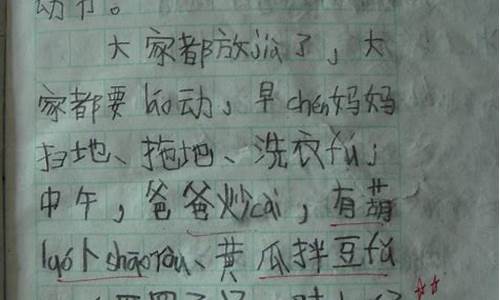 动节。
大家都放jià了，大
家都要láo动，早chén妈妈
扫地、拖地、洗衣fú，
中午，爸爸炒cài，有葫
luó卜shāoròu、黄瓜拌豆fǔ